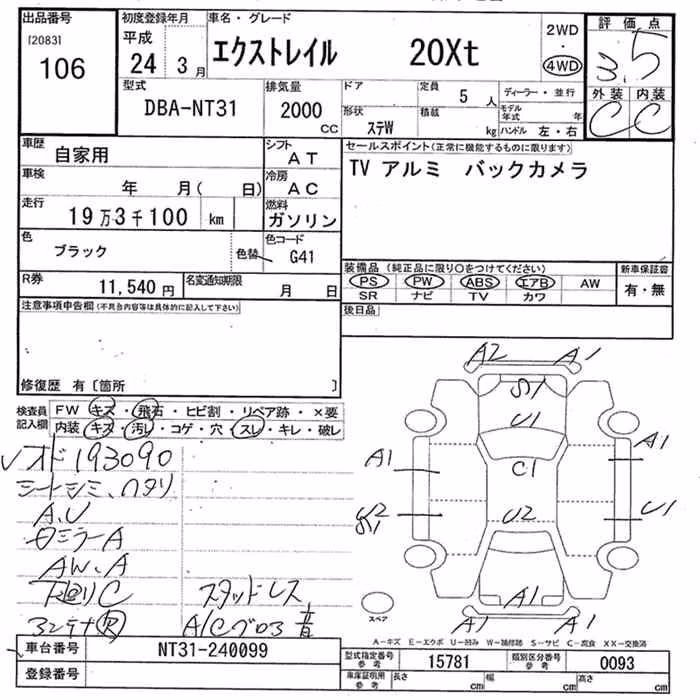 出品番号
[2083]
106
初度登録年月
平成
24年 3月
車名・グレード
エクストレイル 20Xt
2WD
・
4WD
評価点
3.5
外装 内装
C C
型式
DBA-NT31
排気量
2000
cc
ドア
形状
ステW
定員
5人
積載
kg
ディーラー・並行
モデル年式 年
ハンドル 左・右
車歴
自家用
シフト
AT
車検
年 月( 日)
冷房
AC
走行
19万3千100 km
燃料
ガソリン
色
ブラック
色替
色コード
G41
R券
11,540円
名変通知期限
月 日
セールスポイント(正常に機能するものに限ります)
TV アルミ バックカメラ
装備品(純正品に限り○をつけてください)
PS PW ABS エアB AW
SR ナビ TV カワ
新車保証書
有・無
後日品
注意事項申告欄(不具合内容等は具体的に記入して下さい)
修復歴 有〔箇所 〕
検査員記入欄
FW キズ・飛石・ヒビ割・リペア跡・×要
内装 キズ・汚レ・コゲ・穴・スレ・キレ・破レ
オド193090
シートシミ、ヘタリ
A.U
ミラーA
AW.A
下廻りC
スタッドレス
A/Cブロア 音
A2 A1
S1
U1
A1 C1 A1
U2 S1 U2 U1
A1
A1 A1
スペア
A-キズ E-エクボ U-凹み W-補修跡 S-サビ C-腐食 XX-交換済
車台番号
NT31-240099
登録番号
型式指定番号
参考
15781
類別区分番号
参考
0093
車庫証明用
参考
長さ cm
幅 cm
高さ cm